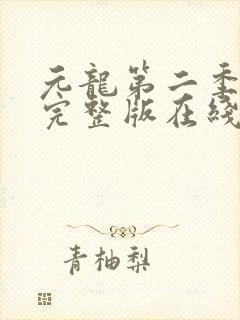 元龍第二季
完整版在綫
青柚梨